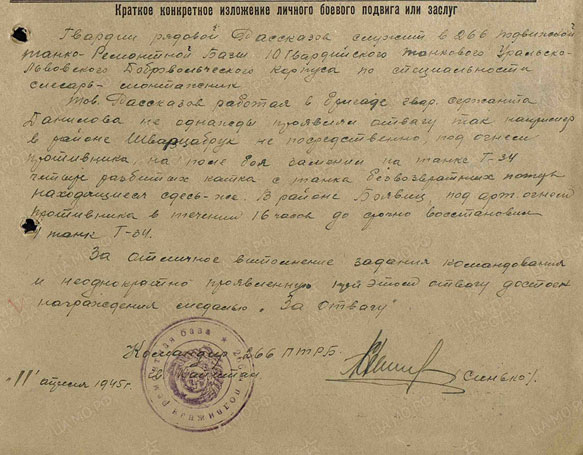 Краткое конкретное изложение личного боевого подвига или заслуг
Гвардии рядовой Рассказов служит в 266 подвижной
танко-Ремонтной Базы 10 Гвардийского танкового Уральско-
Львовского Добровольческого Корпуса по специальности
слесарь-монтажник
Тов. Рассказов работая в бригаде гвар. сержанта
Данилова не однажды проявлял отвагу так например
в районе не посредственно под огнем
противника, на поле боя заменил на танке Т-34
четыре разбитых катка с танка безвозвратных
находящиеся сдесь-же. В районе под арт. огнем
противника в течении 16 часов до срочно восстановил
танк Т-34.
За отличное выполнение задания командования
и неоднократно проявленную при этом отвагу достоен
награждения медалью „За отвагу"
Командир 266 ПТРБ
капитан
/Синько/.
"11" апреля 1945г.